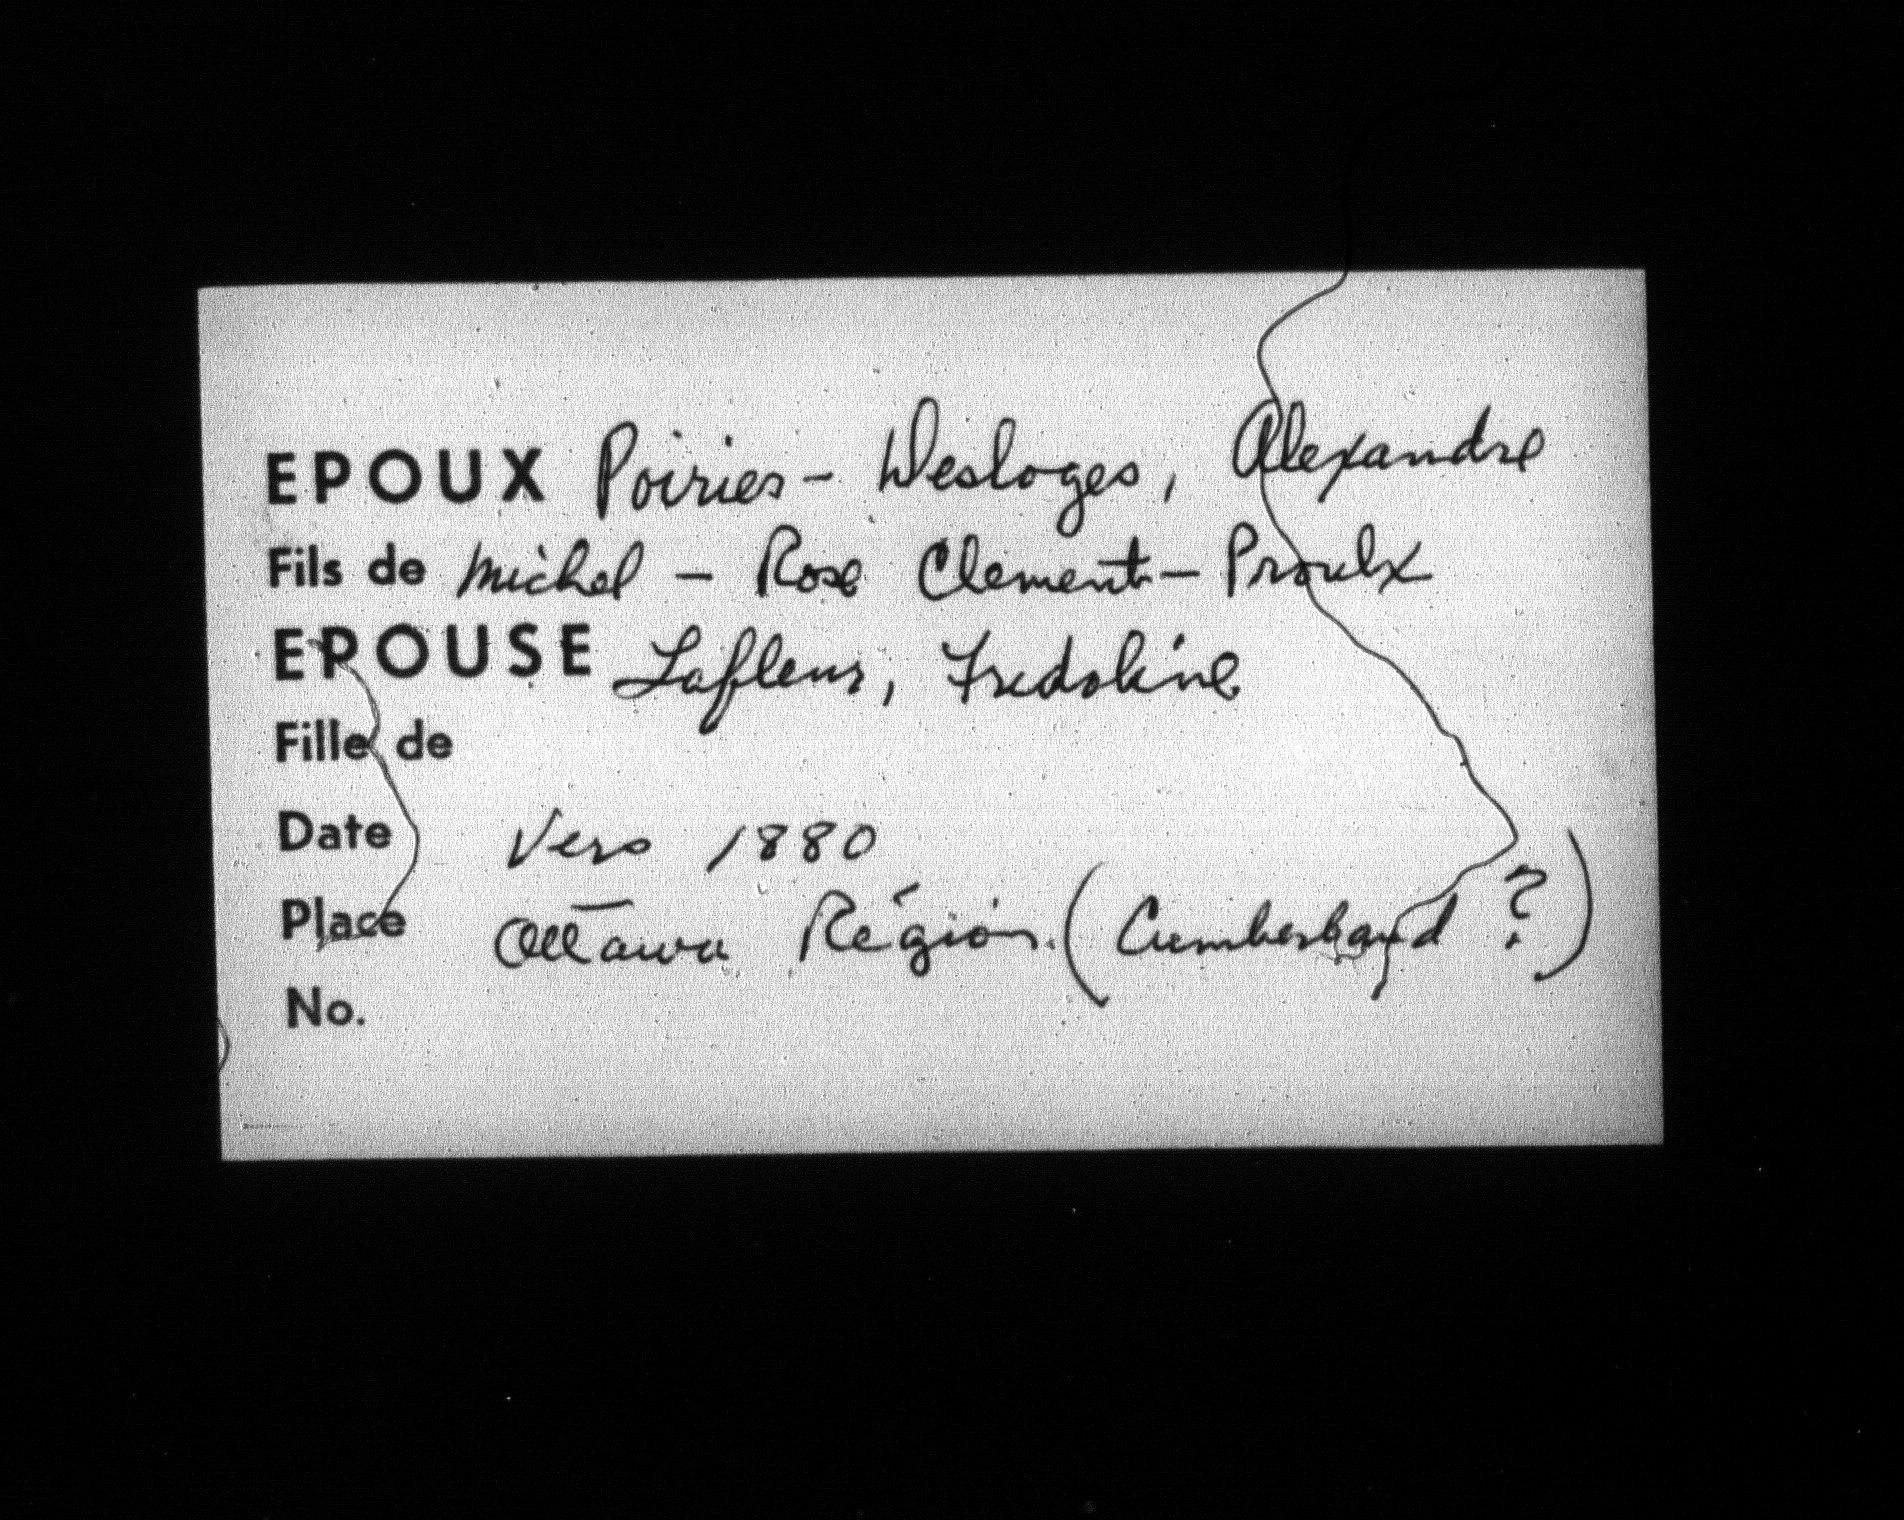 EPOUX Poirier - Desloges, Alexandre
Fils de Michel - Rose Clement - Proulx
EPOUSE Lafleur, Fredoline
Fille de
Date Vers 1880
Place Ottawa Région (Cumberland ?)
No.